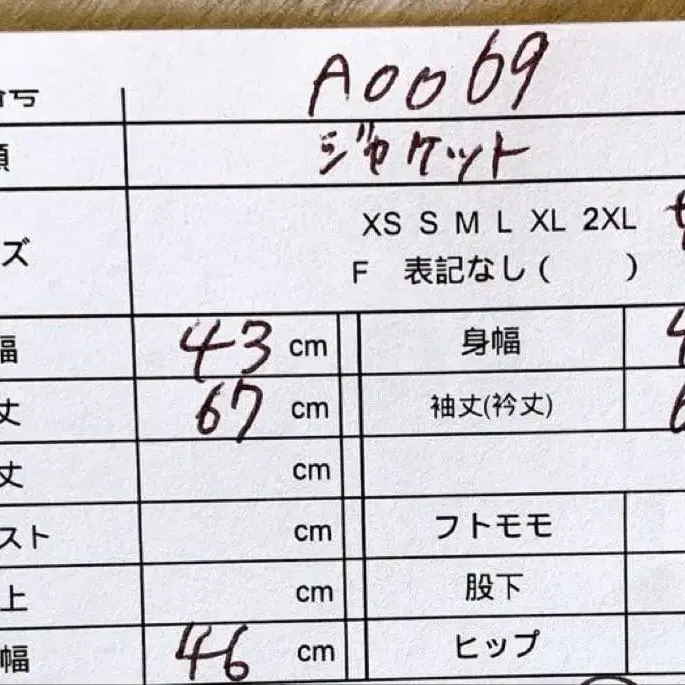 A0069
ジャケット
ズ XS S M L XL 2XL
F 表記なし( )
幅 43 cm 身幅
丈 67 cm 袖丈(衿丈)
丈 cm
スト cm フトモモ
上 cm 股下
幅 46 cm ヒップ